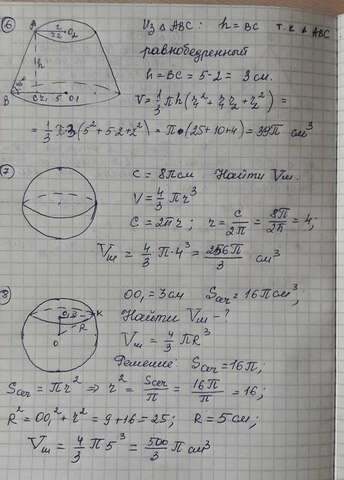 ⑥
B
A
45°
h
r₂=2 O₂
r₁=5 O₁
Из △ABC: h=BC т.к △ABC:
равнобедренный
h=BC=5-2=3см.
V=⅓πh(r₁²+r₁r₂+r₂²)=
=⅓π3(5²+5·2+2²)=π·(25+10+4)=39π см³
⑦
C=8πсм Найти Vш.
V=4/3πr³
C=2πr; r=C/2π=8π/2π=4;
Vш=4/3π·4³=256π/3 см³
⑧
O
R
O₁
r
K
OO₁=3см Sсеч=16πсм³,
Найти Vш-?
Vш=4/3πR³
Решение Sсеч=16π;
Sсеч=πr² ⇒ r²=Sсеч/π=16π/π=16;
R²=OO₁²+r²=9+16=25; R=5см;
Vш=4/3π5³=500/3π см³